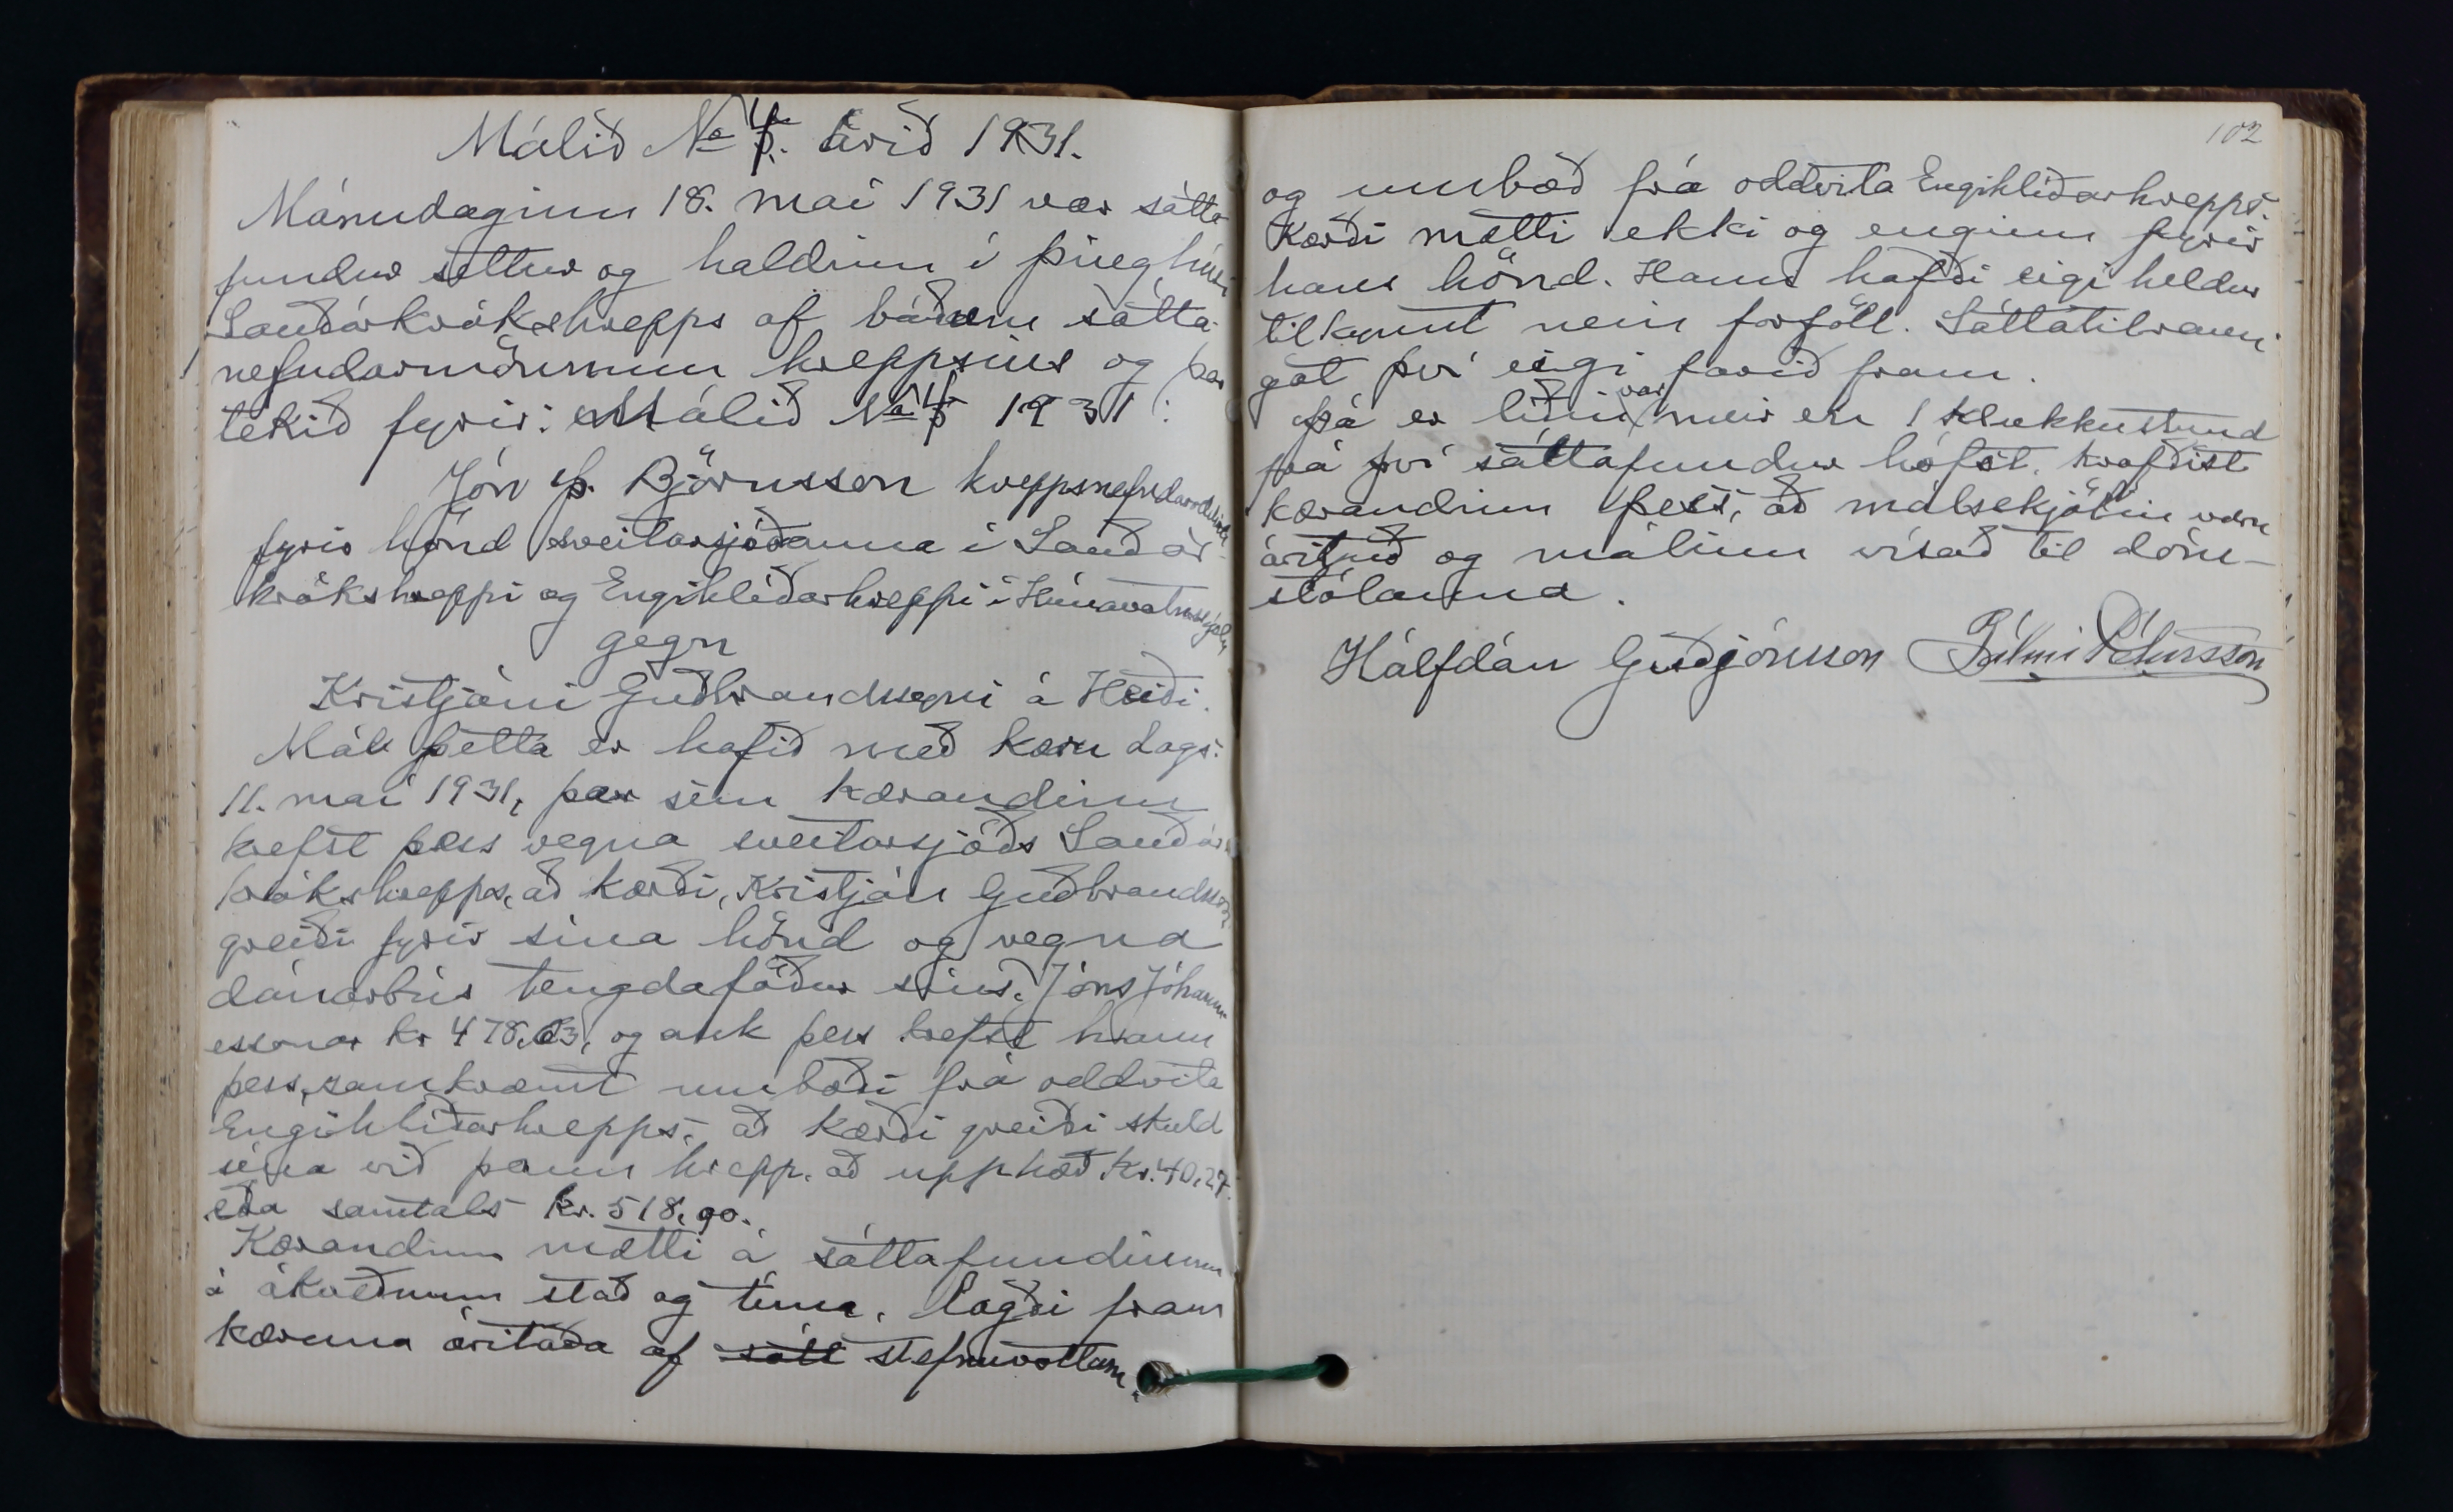 Málið No 4. árið 1931.
Mánudaginn 18. maí 1931 var sátta-
fundur settur og haldinn í þinghúsi
Sauðárkrókshrepps af báðum sátta-
nefndarmönnum hreppsins og þar
tekið fyrir: Málið No 4 1931:
Jón Þ. Björnsson hreppsnefndaroddviti
fyrir hönd sveitarsjóðanna í Sauðár-
krókshreppi og Engihlíðarhreppi í Húnavatnssýslu
gegn
Kristjáni Guðbrandssyni á Heiði.
Mál þetta er hafið með kæru dags.
11. maí 1931, þar sem kærandinn
krefst þess vegna sveitarsjóðs Sauðár-
krókshrepps, að kærði, Kristján Guðbrandsson
greiði fyrir sína hönd og vegna
dánarbús tengdaföður síns, Jóns Jóhann-
essonar kr 478,63, og auk þess krefst hann
þess, samkvæmt umboði frá oddvita
Engihlíðarhrepps, að kærði greiði skuld
sína við þann hrepp, að upphæð kr. 40,27.
eða samtals kr. 518,90.
Kærandinn mætti á sáttafundinum
á ákveðnum stað og tíma, lagði fram
kæruna áritaða af sátt stefnuvottum,
102
og umboð frá oddvita Engihlíðarhrepps.
Kærði mætti ekki og enginn fyrir
hans hönd. Hann hafði eigi heldur
tilkynnt nein forföll. Sáttatilraun
gat því eigi farið fram.
Þá er liðin var meir en 1 klukkustund
frá því sáttafundur hófst, krafðist
kærandinn þess, að málsskjölin væru
árituð og málinu vísað til dóm-
stólanna.
Hálfdán Guðjónsson Pálmi Pétursson